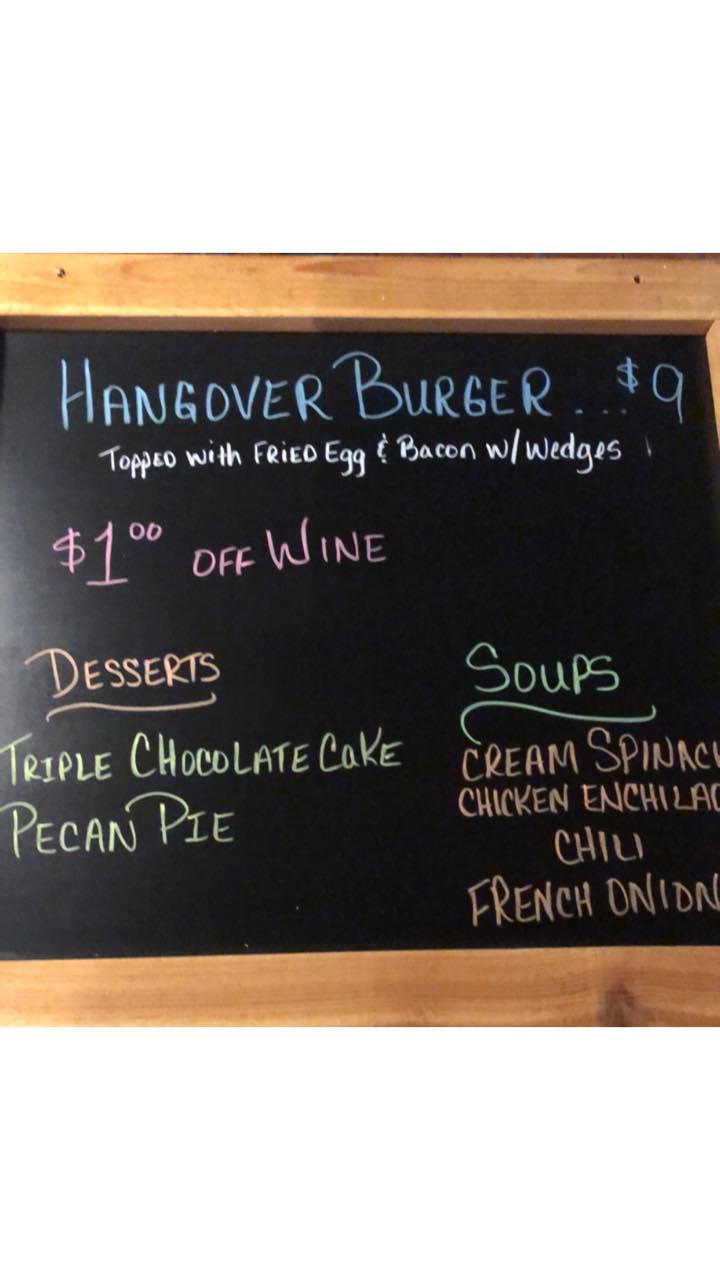 HANGOVER BURGER ... $9
TOPPED with FRIED Egg & Bacon w/ Wedges
$1.00 OFF WINE
DESSERTS
TRIPLE CHOCOLATE CAKE
PECAN PIE
SOUPS
CREAM SPINAC
CHICKEN ENCHILAD
CHILI
FRENCH ONION